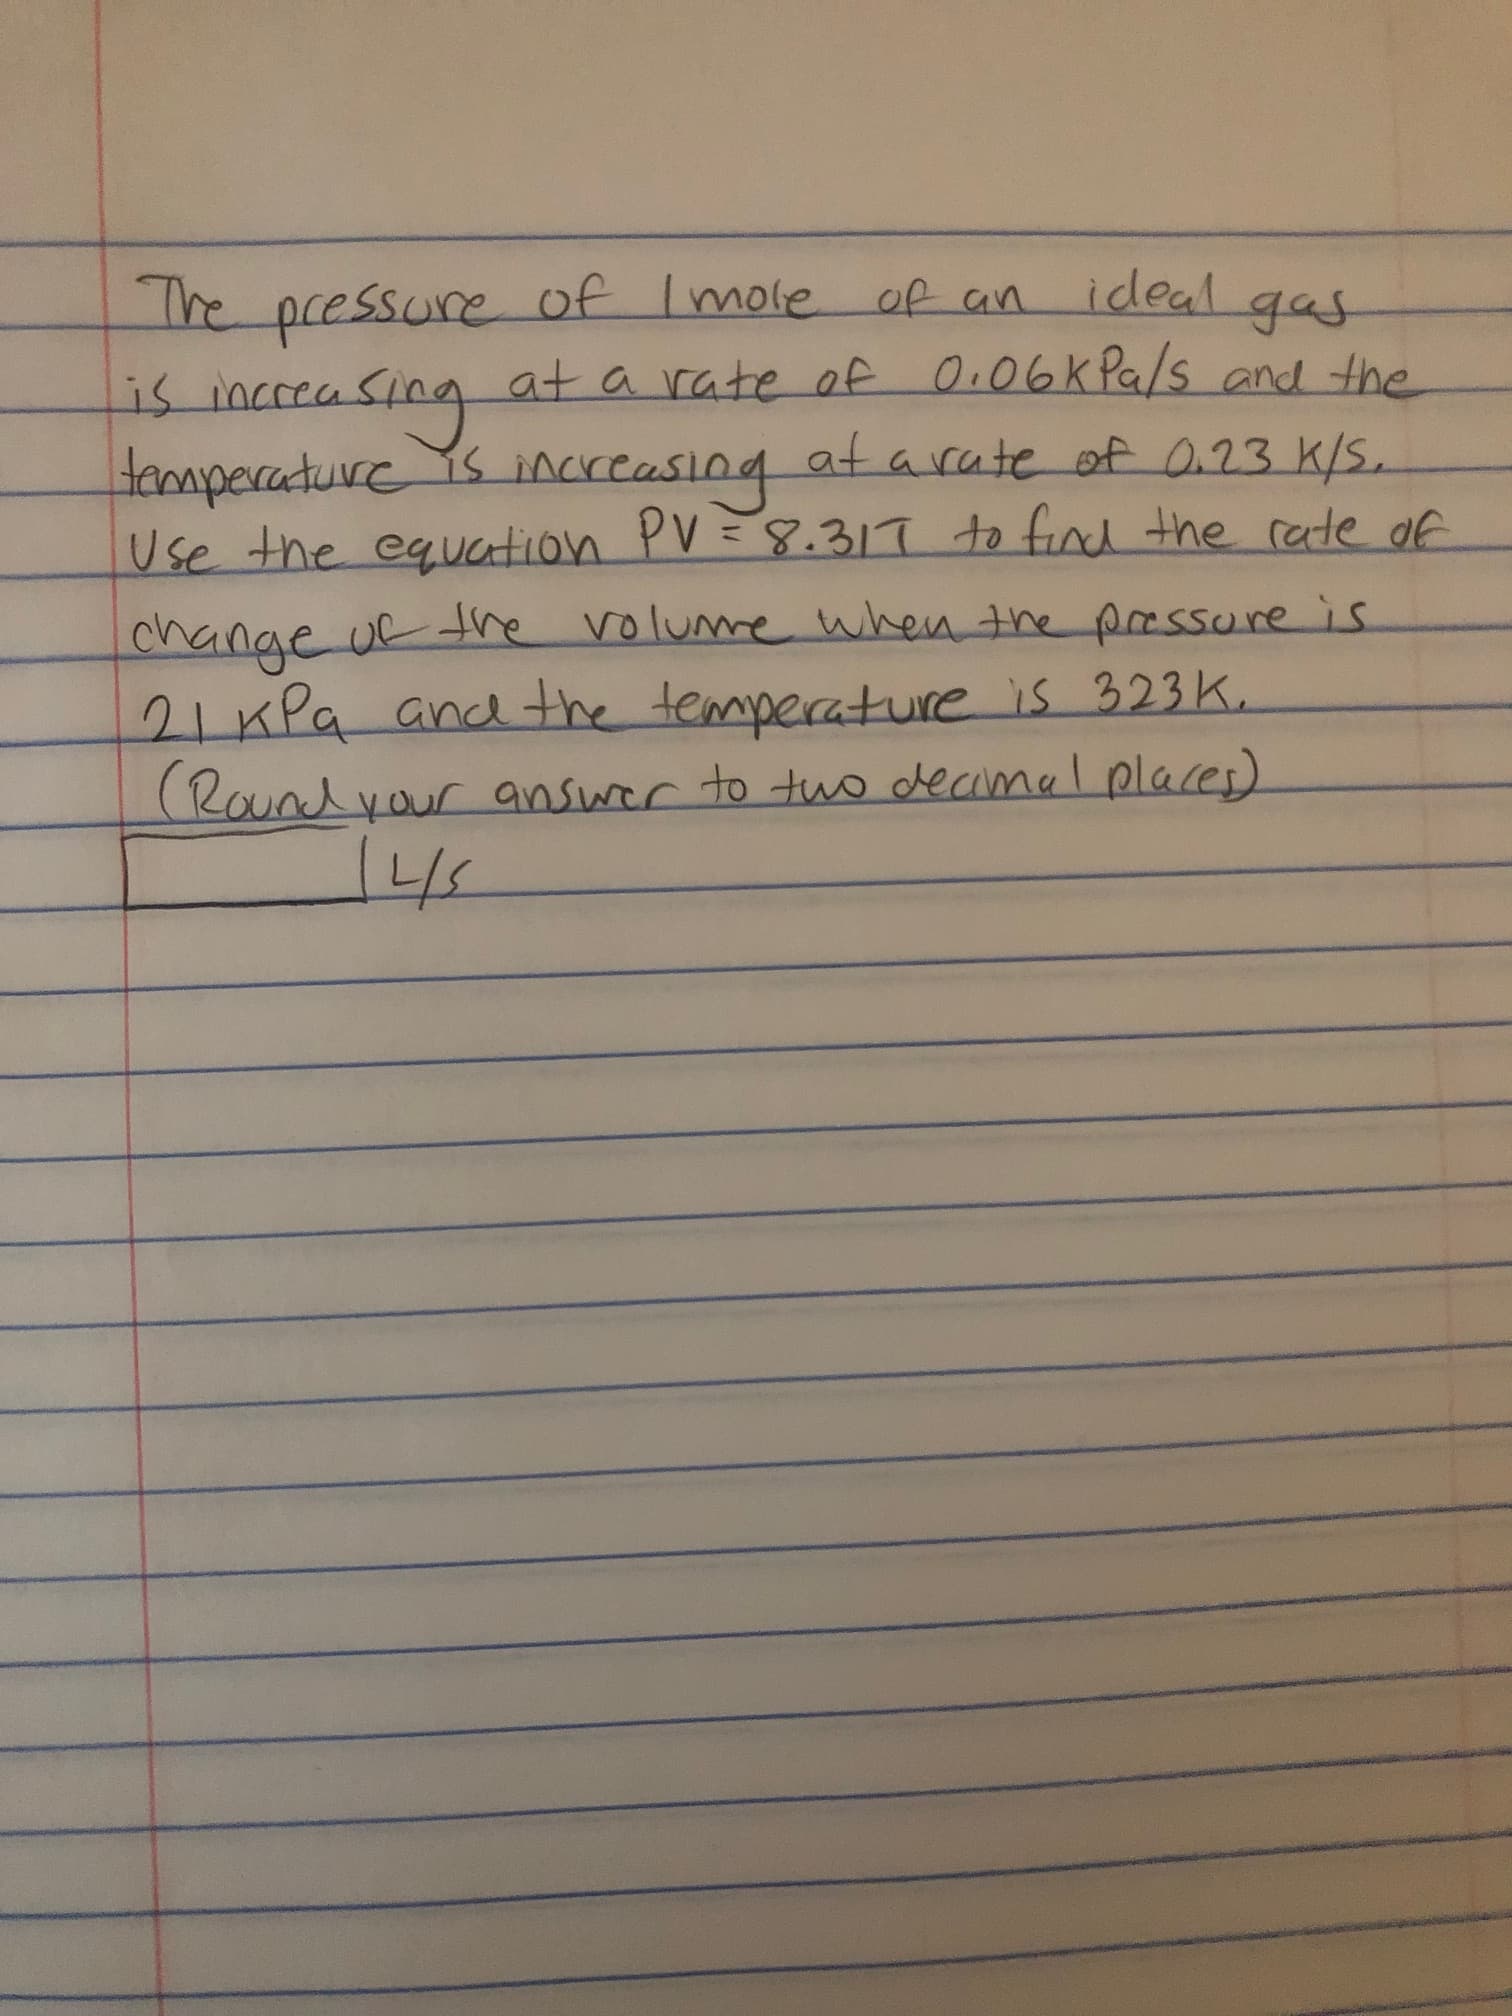 The pressure of 1 mole of an ideal gas
is increasing at a rate of 0.06kPa/s and the
temperature is increasing at a rate of 0.23 K/S.
Use the equation PV = 8.31T to find the rate of
change of the volume when the pressure is
21 KPa and the temperature is 323K.
(Round your answer to two decimal places)
L/S